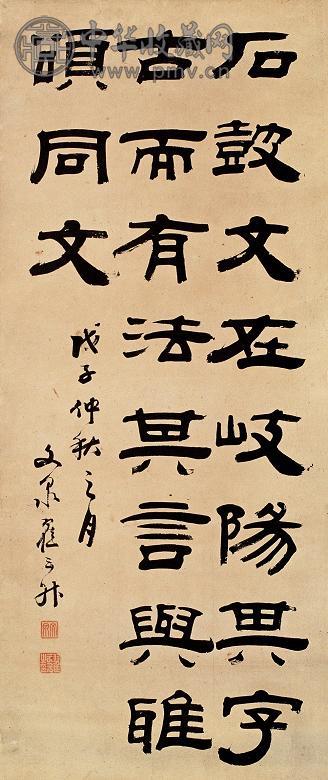 中华收藏网
www.pmv.cn
石鼓文在岐陽其字
古而有法其言與雅
頌同文
戊子仲秋之月
文泉翟云升